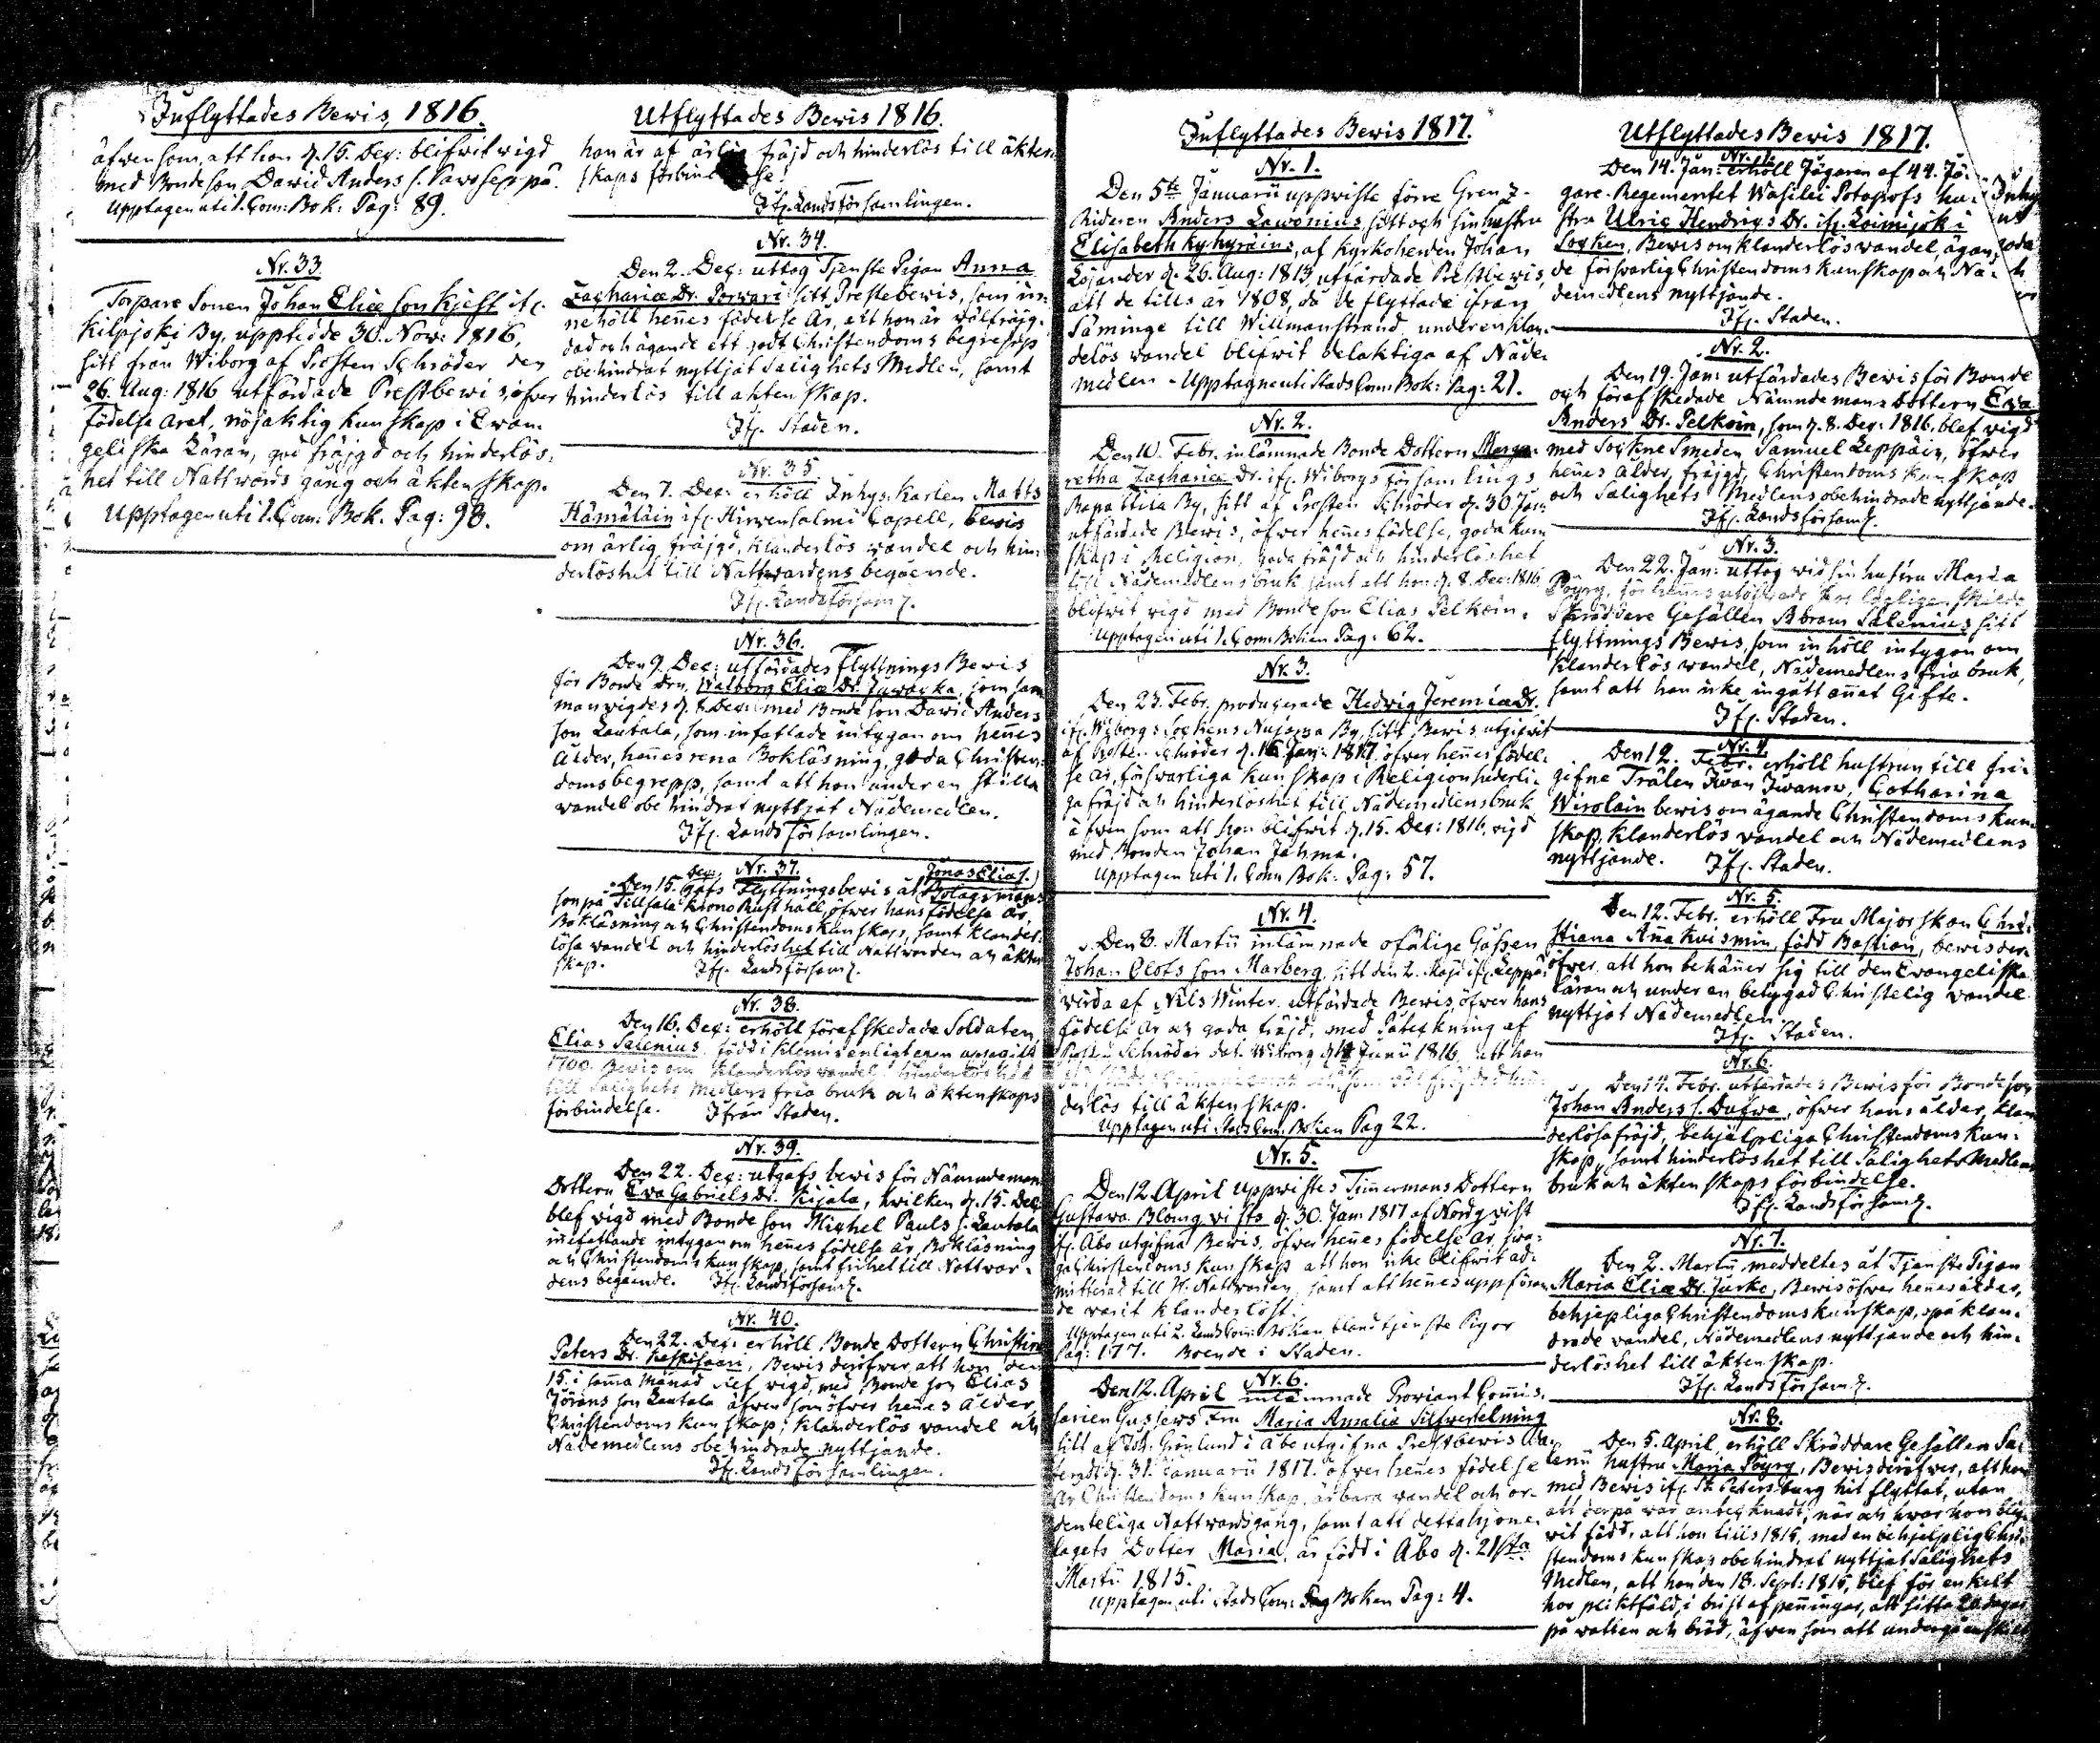 Inflyttades Bewis, 1816.
äfwensom, att hon d. 15. Dec: blifwit wigd
med Bondeson Dawid Anders s. på
Upptagen uti 1. Com: Bok: Pag: 89.
Nr. 33.
Torpare Sonen Johan Eliæ son Kjest if.
Kilpjoki By, upptedde 30. Nov: 1816,
sitt från Wiborg af Prosten Schröder den
26. Aug: 1816 utfärdade Prestbewis, öfwer
födelse året, nöjaktig kunskap i Ewan-
geliska Läran, god fräjgd och hinderlös-
het till Nattwards gång och äktenskap.
Upptagen uti 1. Com: Bok. Pag: 98.
Utflyttades Bewis 1816.
hon är af ärlig fräjd och hinderlös till äkten-
skaps förbindelse.
Ifr. Landsförsamlingen.
Nr. 34.
Den 2. Dec: uttog Tjenste Pigan Anna
Zachariæ Dr. Porwari sitt Prestebewis, som in-
nehöll hennes födelse år, att hon är wälfräjg-
dad och ägande ett godt Christendoms begrepp
obehindrat nyttjat Salighets Medlen, samt
hinderlös till äktenskap.
Ifr. Staden.
Nr. 35.
Den 7. Dec: erhöll Inhys. Karlen Matts
Hämäläin ifr. Hirwensalmi Capell, bewis
om ärlig fräjgd, klanderlös wandel och hin-
derlöshet till Nattwardens begående.
Ifr. Landsförsaml.
Nr. 36.
Den 9. Dec: utfärdades Flyttnings Bewis
för Bonde Dren Walborg Eliæ Dr. Juwonka, som sam-
manwigdes d. Dec: med Bonde son Dawid Anders
son Lautala, som infattade intygan om hennes
ålder, hennes rena Bokläsning, goda Christen-
domsbegrepp, samt att hon under en stilla
wandel obehindrat nyttjat Nådemedlen.
Ifr. Landsförsamlingen.
Nr. 37.
Den 15. Dec: gafs Flyttningsbewis åt Bolagsmans Jonas Elias
son på Tillsala Krono Rusthåll, öfwer hans födelse år,
Bokläsning och Christendoms kunskap, samt klander-
lösa wandel och hinderlöshet till Nattwarden och äkten-
skap. Ifr. Landsförsaml.
Nr. 38.
Den 16. Dec: erhöll förafskedade Soldaten
Elias Salenius, född i Klemis enligt egen uppgift
1700. Bewis om klanderlös wandel hinderlöshet
till Salighets Medlens fria bruk och äktenskaps
förbindelse. Ifrån Staden.
Nr. 39.
Den 22. Dec: utgafs bewis för Nämndemans
Dottern Ewa Gabriels Dr. Kijala, hwilken d. 15. Dec:
blef wigd med Bonde son Michel Pauls s. Lautala
innefattande intygan om hennes födelse år, Bokläsning
och Christendoms kunskap, samt frihet till Nattwar-
dens begående. Ifr. Landsförsaml.
Nr. 40.
Den 22. Dec: erhöll Bonde Dottern Christina
Peters Dr. Keskisaari, Bewis deröfwer att hon den
15. i samma Månad blef wigd, med Bonde son Elias
Jörans son Lautala äfwensom öfwer hennes ålder,
Christendoms kunskap, klanderlös wandel och
Nådemedlens obehindrade nyttjande.
Ifr. Landsförsamlingen.
Inflyttades Bewis 1817.
Nr. 1.
Den 5te Januarii uppwiste förre Grenz-
Rideren Anders Lawonius, sitt och sin hustru
Elisabeth Kyhyräins, af Kyrkoherden Johan
Lojander d. 26. Aug: 1813 utfärdade Prestbewis,
att de tills år 1808, då de flyttade ifrån
Säminge till Willmanstrand under en klan-
derlös wandel blifwit delaktiga af Nåde-
medlen. Upptagne uti Stads Com: Bok: Pag: 21.
Nr. 2.
Den 10. Febr. inlämnade Bonde Dottern Marga-
retha Zachariæ Dr. ifr. Wiborgs församlings
Rapattila By, sitt af Prosten Schröder d. 30. Jan:
utfärdade Bewis, öfwer hennes födelse, goda kun-
skap i Religion, goda fräjd och hinderlöshet
till Nådemedlens bruk samt att hon d. 8. Dec: 1816
blifwit wigd med Bonde son Elias Pelkoin.
Upptagen uti 1. Com: Boken Pag: 62.
Nr. 3.
Den 23. Febr. producerade Hedwig Jeremiæ Dr.
ifr. Wiborgs Sockens By, sitt Bewis, utgifwit
af Prosten Schröder d. 16 Jan: 1817 öfwer hennes födel-
se år, förswarliga kunskap i Religion hederli-
ga fräjd och hinderlöshet till Nådemedlens bruk
äfwensom att hon blifwit d. 15. Dec: 1816, wigd
med Bonden Johan Jahma.
Upptagen uti 1. Com Bok: Pag: 57.
Nr. 4.
Den 8. Martii inlämnade ofälige Gossen
Johan Olofs son Marberg, sitt den 2. Maji ifr. Leppä-
wirda af Nils Winter utfärdade Bewis, öfwer hans
födelse år och goda fräjd, med Påteckning af
Prosten Schröder dat. Wiborg d. Junii 1816, att han
derlös till äktenskap.
Upptagen uti Stads Com: Boken Pag 22.
Nr. 5.
Den 12. April uppwistes Timmermans Dottern
Gustawa Blomqwists d. 30. Jan: 1817 af Nordqwist
ifr. Åbo utgifna Bewis, öfwer hennes födelse år, swa-
ga Christendoms kunskap att hon icke blifwit ad-
mitterad till H. Nattwarden, samt att hennes uppföran-
de warit klanderlöst.
Upptagen uti 2. Lands Com: Boken bland tjenste Pigor
Pag: 177. Boende i Staden.
Nr. 6.
Den 12. April inlämnade Proviant Commis-
sarien Gussews Fru Maria Amalia Silfwerhelming
sitt af Joh: Grönlund i Åbo utgifna Prestbewis da-
teradt d. 31. Januarii 1817. öfwer hennes födelse
år Christendoms kunskap, ärbara wandel och or-
denteliga Nattwardsgång, samt att detta hjone-
lagets Dotter Maria, är född i Åbo d. 21sta
Martii 1815.
Upptagen uti Stads Com: Boken Pag: 4.
Utflyttades Bewis 1817.
Nr. 1.
Den 14. Jan: erhöll Jägaren af 44. Jä-
gare-Regementet Wasilei Potopofs hu-
stru Ulrica Hendrigs Dr. ifr. Loimijoki
Socken, Bewis om klanderlös wandel, ägan-
de förswarlig Christendoms kunskap och Nå-
demedlens nyttjande.
Ifr. Staden.
Nr. 2.
Den 19. Jan: utfärdades Bewis för Bonde
och förafskedade Nämndemans Dottern Ewa
Anders Dr. Pelkoin, som d. 8. Dec: 1816, blef wigd
med Sockne Smeden Samuel Leppäin, öfwer
hennes ålder, fräjgd, Christendoms kunskap
och Salighets Medlens obehindrade nyttjande.
Ifr. Landsförsaml.
Nr. 3.
Den 22. Jan: uttog wid sin hustru Maria
Skräddare Gesällen Abram Salenius sitt
flyttnings Bewis, som inhöll intygan om
klanderlös wandel, Nådemedlens fria bruk,
samt att han icke ingått annat Gifte.
Ifr. Staden.
Nr. 4.
Den 12. Febr. erhöll hustrun till fri-
gifne Trälen Iwan Iwanow, Catharina
Wirolain bewis om ägande Christendoms kun-
skap, klanderlös wandel och Nådemedlens
nyttjande. Ifr. Staden.
Nr. 5.
Den 12. Febr. erhöll Fru Majorskan Chri-
stiana Anna Kuismin, född Bastian, bewis der-
öfwer, att hon bekänner sig till den Evangeliska
Läran och under en betygad Christelig wandel
nyttjat Nådemedlen.
Ifr. Staden.
Nr. 6.
Den 14. Febr. utfärdades Bewis för Bondeson
Johan Anders s. Dufwa, öfwer hans ålder, klan-
derlösa fräjd, behjälpliga Christendoms kun-
skap, samt hinderlöshet till Salighets Medlens
bruk och äktenskaps förbindelse.
Ifr. Landsförsaml.
Nr. 7.
Den 2. Martii meddeltes åt Tjenste Pigan
Maria Eliæ Dr. Jurko, Bewis öfwer hennes ålder,
behjelpliga Christendoms kunskap, opåklan-
drade wandel, Nådemedlens nyttjande och hin-
derlöshet till äktenskap.
Ifr. Landsförsaml.
Nr. 8.
Den 5. April erhöll Skräddare Gesällen Sa-
lenii hustru Maria Poyry, Bewis deröfwer, att hon
med Bewis ifr. St. Petersburg hit flyttat, utan
att derpå war anteknadt, när och hwar hon blif-
wit född, att hon tills 1815, med en behjelplig Chri-
stendoms kunskap obehindrat nyttjat Salighets
Medlen, att hon den 18. Sept: 1815, blef för enkelt
hor pliktfäld, i brist af penningar, att sitta dagar
på watten och bröd, äfwensom att undergå enskilt